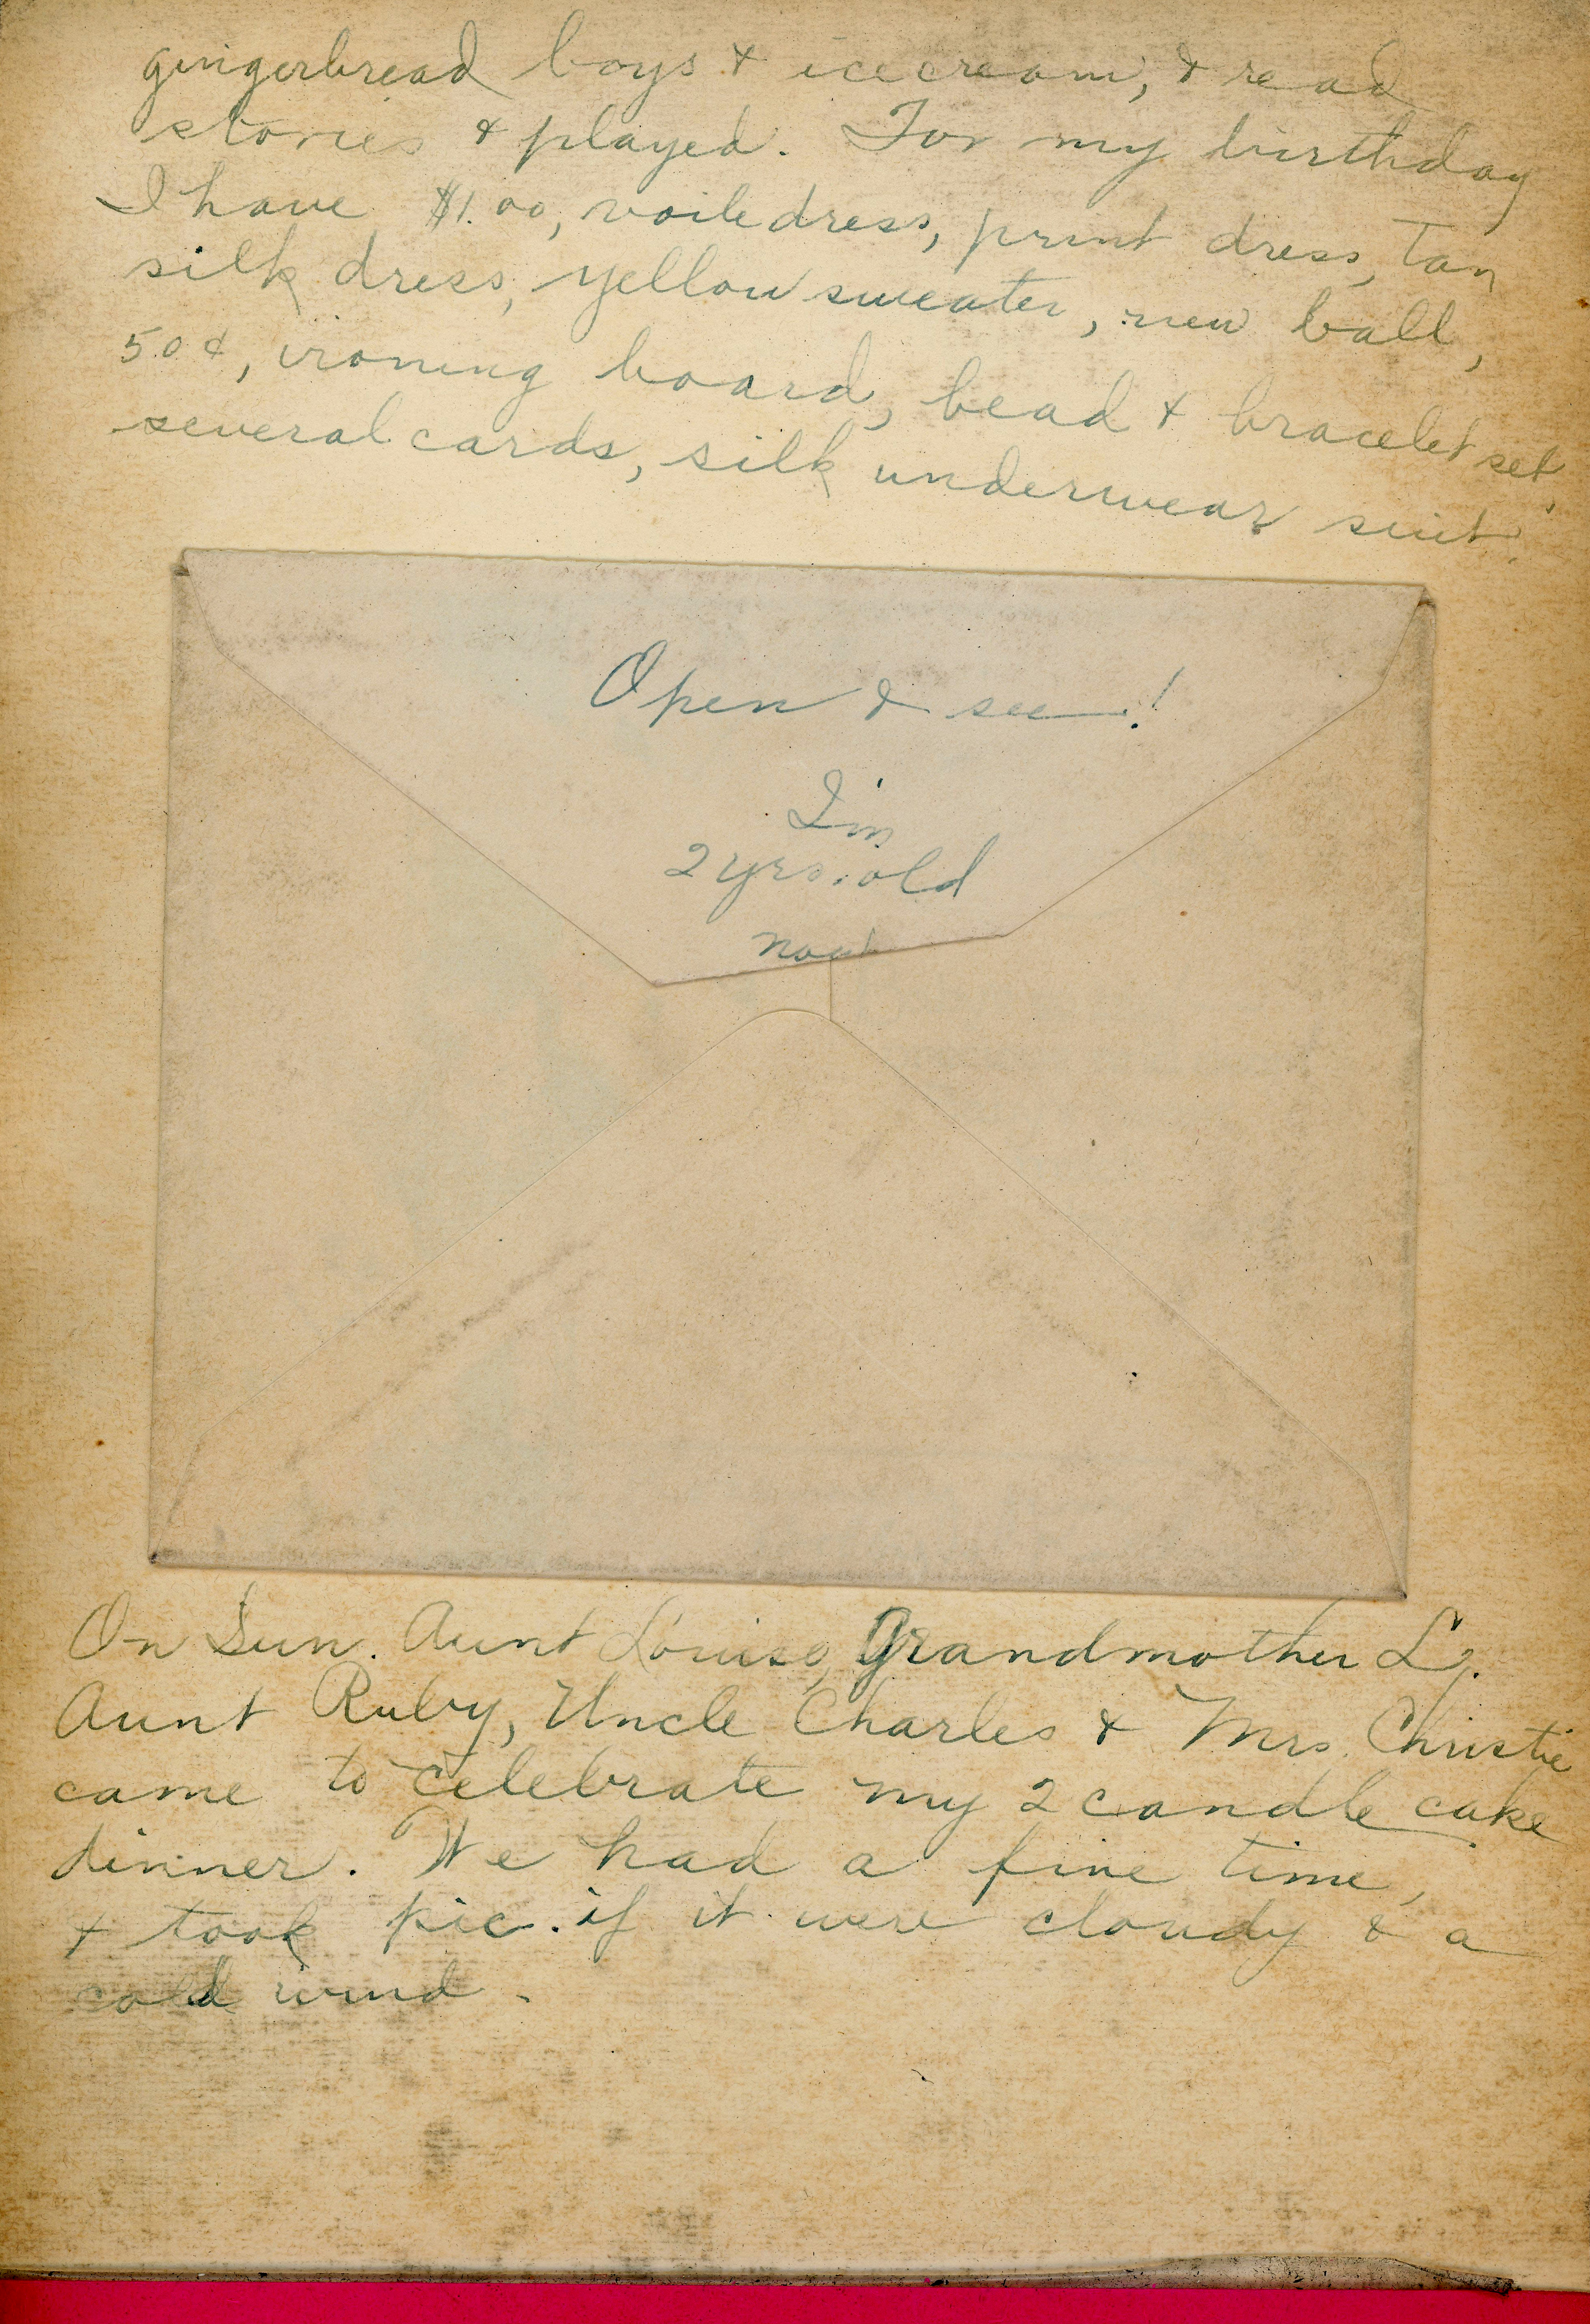 gingerbread boys & icecream, & read
stories & played. For my birthday
I have $1.00, voile dress, print dress, tan
silk dress, yellow sweater, new ball,
50¢, ironing board, bead & bracelet set,
several cards, silk underwear suit.
Open & see!
I'm
2 yrs. old
now
On Sun. Aunt Louise, Grandmother L.,
Aunt Ruby, Uncle Charles & Mrs. Christie
came to celebrate my 2 candle cake
dinner. We had a fine time,
& took pic. if it were cloudy & a
cold wind.